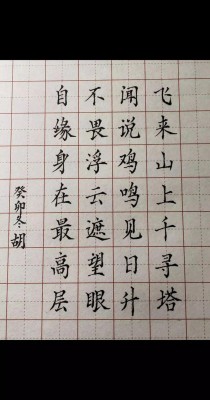 飞来山上千寻塔
闻说鸡鸣见日升
不畏浮云遮望眼
自缘身在最高层
癸卯冬胡